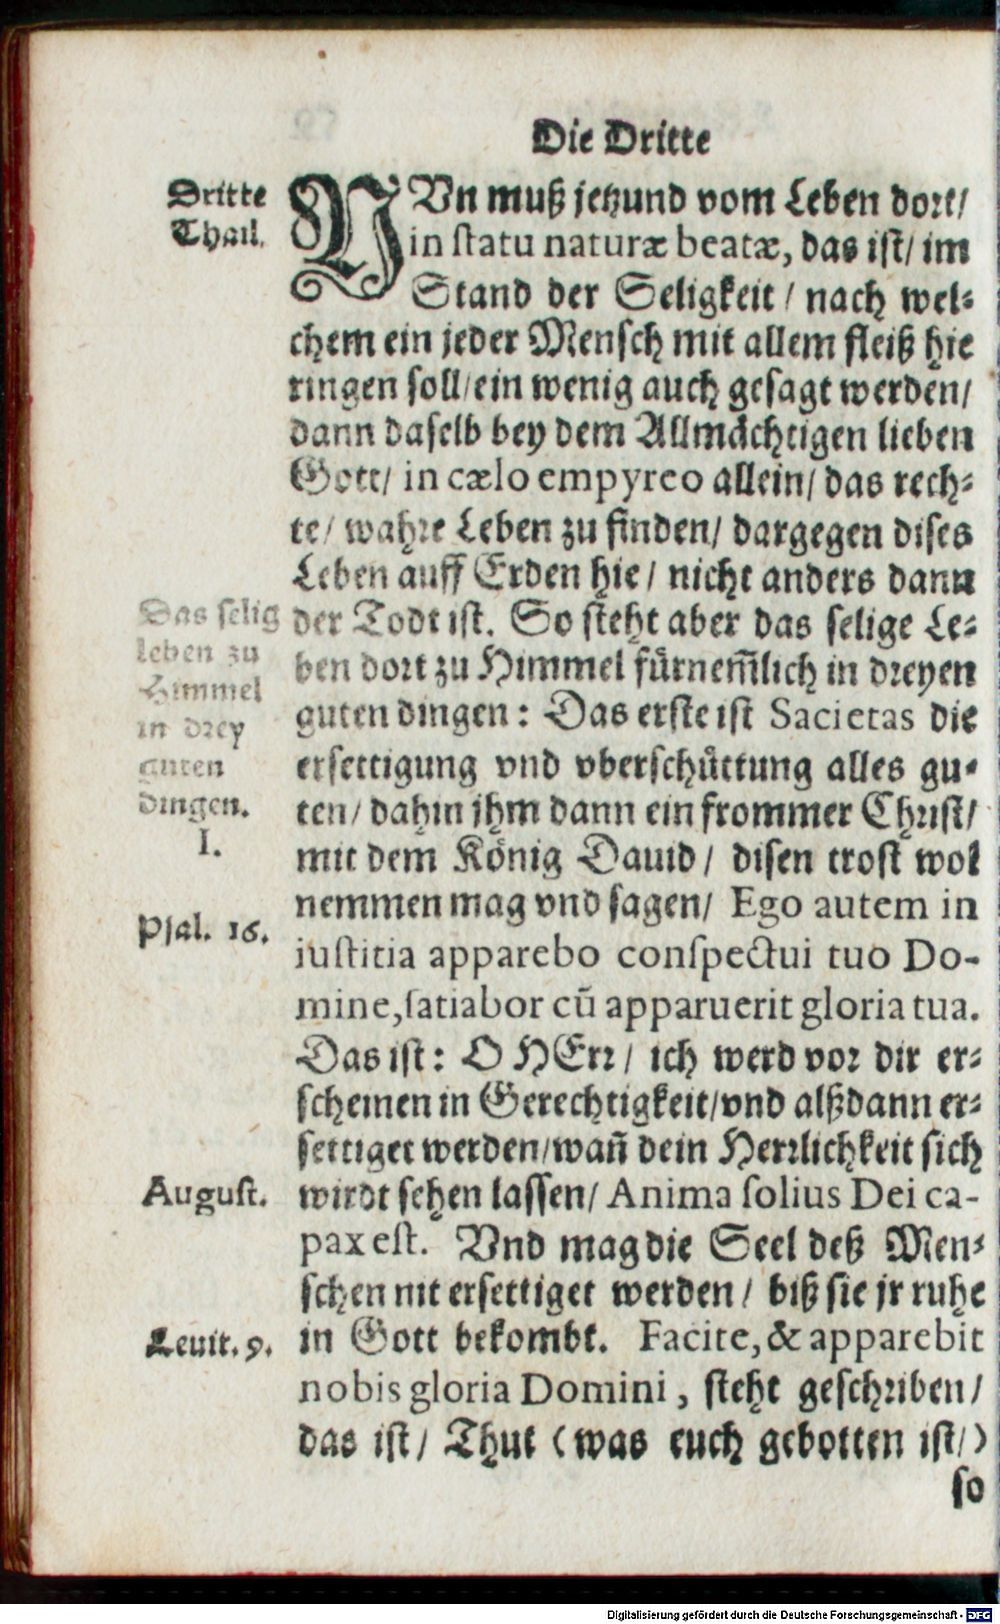 Die Dritte
Dritte
Thail.
NUn muß jetzund vom Leben dort/
in statu naturæ beatæ, das ist/ im
Stand der Seligkeit / nach wel-
chem ein jeder Mensch mit allem fleiß hie
ringen soll/ ein wenig auch gesagt werden/
dann daselb bey dem Allmächtigen lieben
Gott/ in cælo empyreo allein/ das rech-
te/ wahre Leben zu finden/ dargegen dises
Leben auff Erden hie / nicht anders dann
der Todt ist. So steht aber das selige Le-
ben dort zu Himmel fürnem̃lich in dreyen
guten dingen: Das erste ist Sacietas die
ersettigung vnd vberschüttung alles gu-
ten/ dahin jhm dann ein frommer Christ/
mit dem König Dauid / disen trost wol
nemmen mag vnd sagen/ Ego autem in
iustitia apparebo conspectui tuo Do-
mine, satiabor cũ apparuerit gloria tua.
Das ist: O HErr / ich werd vor dir er-
scheinen in Gerechtigkeit/ vnd alßdann er-
settiget werden/ wañ dein Herrlichkeit sich
wirdt sehen lassen/ Anima solius Dei ca-
pax est. Vnd mag die Seel deß Men-
schen nit ersettiget werden / biß sie jr ruhe
in Gott bekombt. Facite, & apparebit
nobis gloria Domini, steht geschriben/
das ist/ Thut (was euch gebotten ist/)
so
Das selig
leben zu
Himmel
in drey
guten
dingen.
I.
Psal. 16.
August.
Leuit. 9.
Digitalisierung gefördert durch die Deutsche Forschungsgemeinschaft - DFG